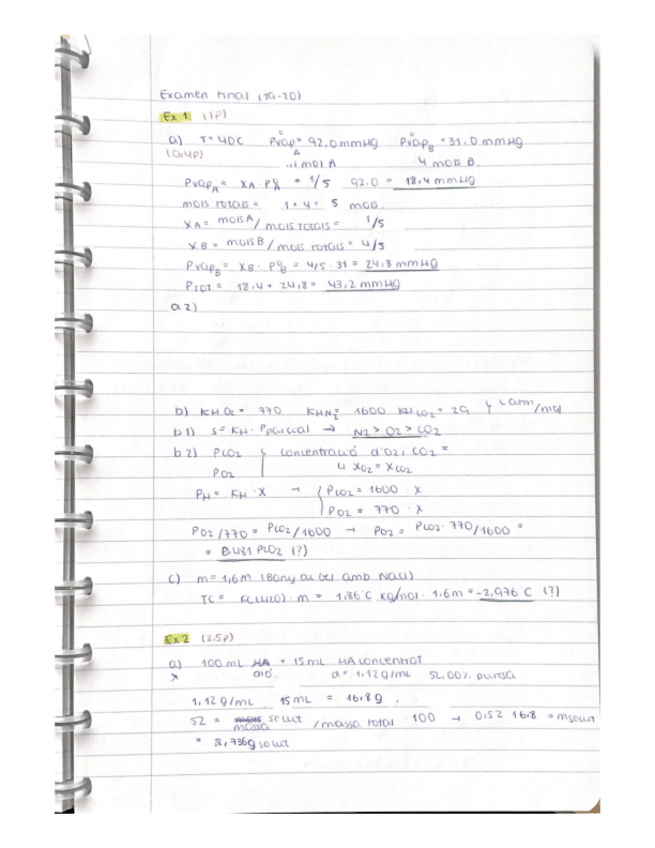 Examen final (19-20)
Ex 1 (1p)
a) T= 40C Pvap°A= 92.0mmHg Pvap°B = 31.0mmHg
(0,4p) 1 mol A 4 mols B.
PvapA= XA · P°A = 1/5 92.0 = 18,4 mmHg
mols totals = 1 + 4 = 5 mols.
XA= molsA/mols totals = 1/5
XB = molsB/mols totals = 4/5
PvapB= XB · P°B = 4/5 · 31 = 24,8 mmHg
PTOT = 18,4 + 24,8 = 43,2 mmHg
a2)
b) KH O2 = 770 KH N2= 1600 KH CO2 = 29 L·atm/mol
b1) S= KH · Pparcial → N2 > O2 > CO2
b2) PCO2 concentració d'O2, CO2 =
PO2 ↳ XO2 = XCO2
PH = KH · X → { PCO2 = 1600 · X
PO2 = 770 · X
PO2/770 = PCO2/1600 → PO2 = PCO2 · 770/1600 =
= 0.481 PCO2 (?)
c) m= 1,6m (Bany de gel amb NaCl)
TC = KC(H2O) · m = 1,86°C kg/mol · 1,6m = -2,976°C (?)
Ex 2 (2.5p)
a) 100 mL HA + 15mL HA concentrat
x àcid. d= 1,12g/mL 52,00% puresa
1,12 g/mL . 15mL = 16,8g .
52 = massa solut /massa total · 100 → 0,52 · 16,8 = msolut
= 8,736g solut